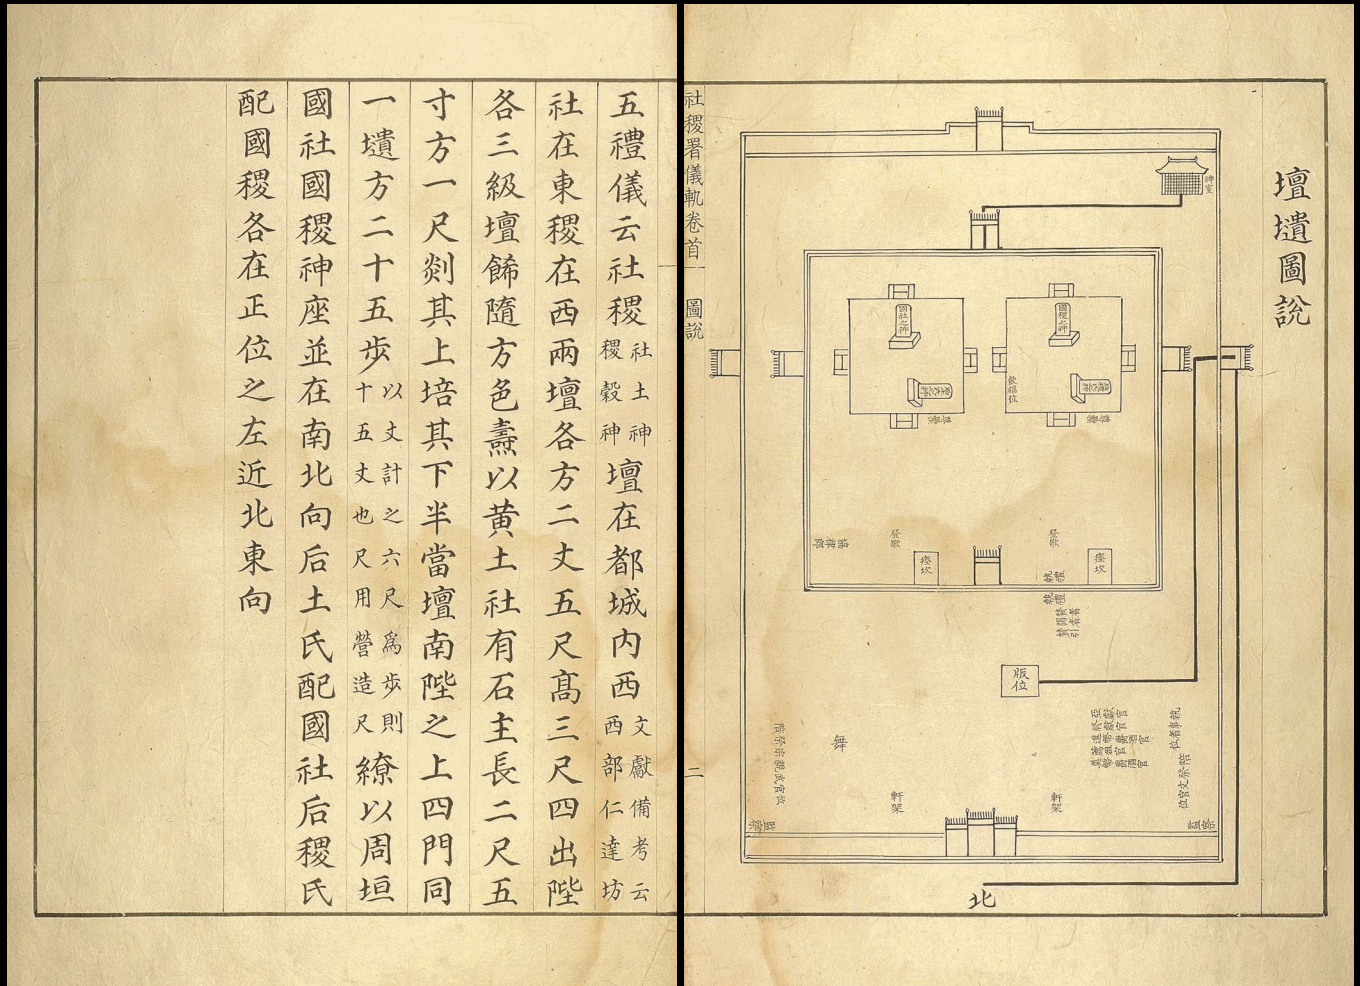 壇壝圖說
神室
國社之神
國稷之神
飮福位
瘞坎
瘞坎
協律郎
執禮
執禮
版位
舞
軒架
軒架
監察
監察
北
社稷署儀軌卷首
圖說
二
五禮儀云社稷社土神稷穀神壇在都城内西文獻備考云西部仁達坊
社在東稷在西兩壇各方二丈五尺高三尺四出陛
各三級壇餙隨方色燾以黄土社有石主長二尺五
寸方一尺剡其上培其下半當壇南陛之上四門同
一壝方二十五步以丈計之六尺爲步則十五丈也尺用營造尺繚以周垣
國社國稷神座並在南北向后土氏配國社后稷氏
配國稷各在正位之左近北東向